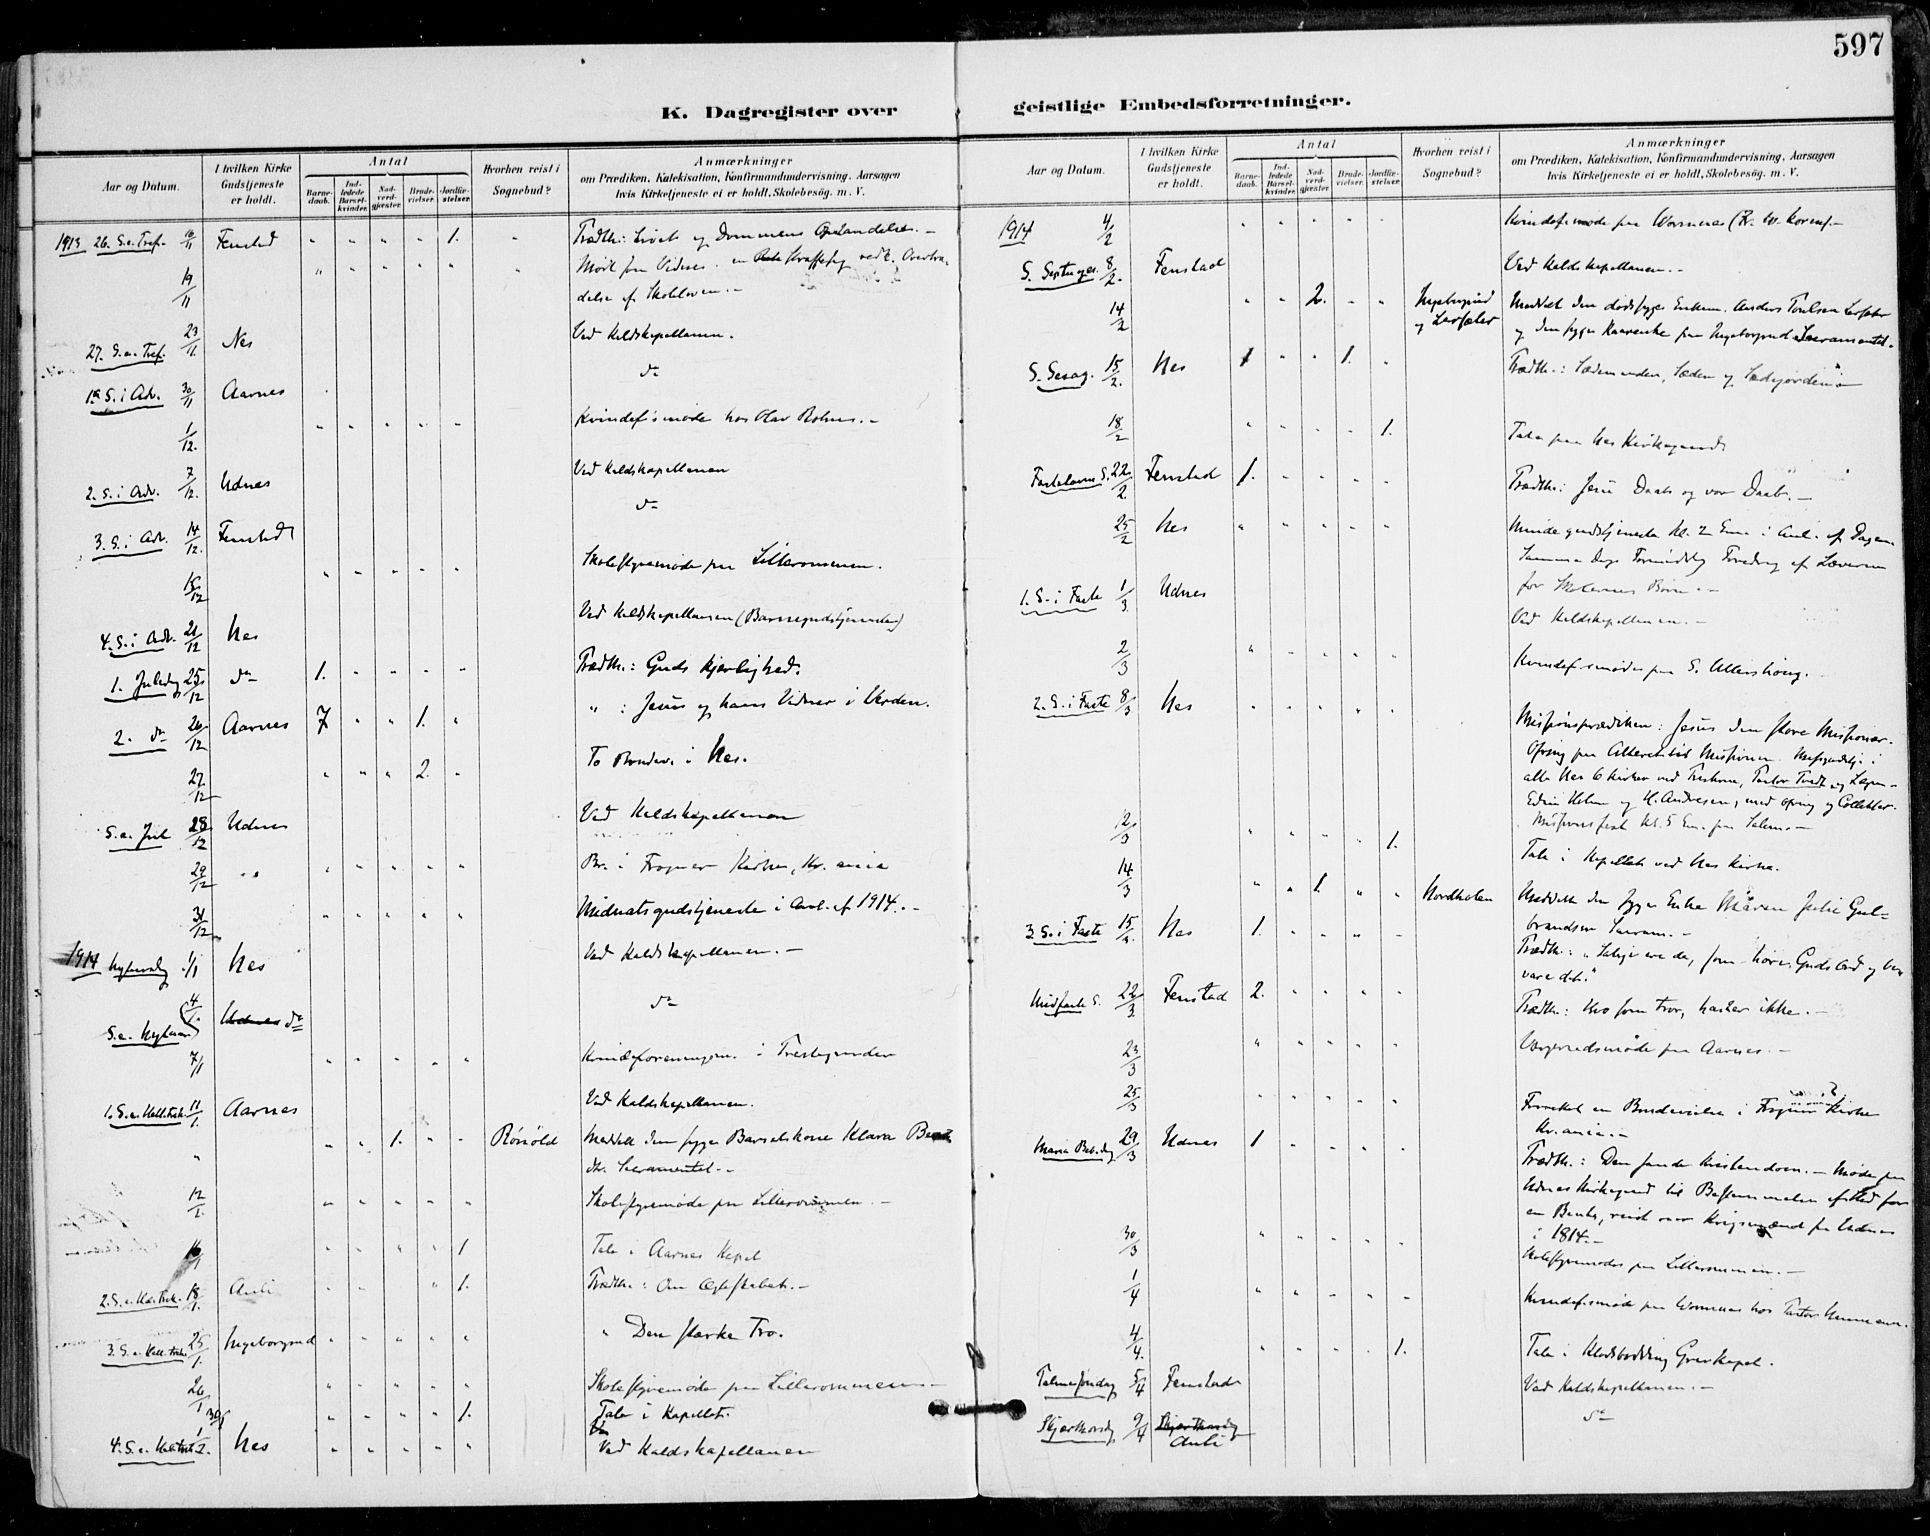 597
K. Dagregister over
geistlige Embedsforretninger.
Aar og Datum.
I hvilken Kirke Gudstjeneste er holdt.
Antal
Barnedaab.
Indledede Barselkvinder.
Nadverdgjæster.
Brudevielser.
Jordfæstelser.
Hvorhen reist i Sognebud?
Anmærkninger
om Prædiken, Katekisation, Konfirmandundervisning, Aarsagen
hvis Kirketjeneste ei er holdt, Skolebesøg. m. V.
1913 26. S.e. Tref. 16/11 Fenstad " " " " 1. " Prædk.: Livets og Dommens
19/11 " " " " " "
delse af Skoleloven.-
27. S.e. Tref. 23/11 Nes Ved Kaldskapellanen.
1ste S. i Adv. 30/11 Aarnes do
1/12. " " " " " Kvindef.smøde hos Olav
2. S. i Adv. 7/12. Udnes Ved Kaldskapellanen
3. S. i Adv. 14/12. Fenstad do
15/12 " " " " " Skolestyremøde paa Lilleromunen.
4. S. i Adv. 21/12 Nes Ved Kaldskapellanen (Barnegudstjenesten)
1. Juledag 25/12 do 1. " " " " Prædk.: Guds Kjærlighed.
2. do 26/12 Aarnes 7 " " 1. " " : Jesus og hans Vidner i Verden.
27/12 " " " 2. " To Brudev. i Nes.
S.e. Jul 28/12 Udnes Ved Kaldskapellanen
29/12 " " " " " " Br. i Frogner Kirke, Kr.ania
31/12 " " " " " Midnatsgudstjeneste i Anl. af 1914.-
1914 Nytaarsdag 1/1 Nes Ved Kaldskapellanen.-
S.e. Nytaar 4/1. Udnes do do
7/1 " " " " " Kvindeforeningen i
1. S.e. Hell.trek. 11/1. Aarnes Ved Kaldskapellanen.
" " " 1. " " Rönöld Meddelt den syge Barselskone Klara
Sacramentet.-
12/1. " " " " " Skolestyremøde paa Lilleromunen.-
16/1 " " " " 1 Tale i Aarnes Kapel
2. S.e. H.3.trek. 18/1. Auli " " " 1. Prædk.: Om Ægteskabet.-
3. S.e. Hell.trek. 25/1. Ingeborgrud " " " " " " Den stærke Tro.
26/1 " " " " " Skolestyremøde paa Lilleromunen.-
30/1 " " " " 1. Tale i Kapellet.
4. S.e. Hell.trek. 1/2. Nes " " " " " Ved Kaldskapellanen
Aar og Datum.
I hvilken Kirke Gudstjeneste er holdt.
Antal
Barnedaab.
Indledede Barselkvinder.
Nadverdgjæster.
Brudevielser.
Jordfæstelser.
Hvorhen reist i Sognebud?
Anmærkninger
om Prædiken, Katekisation, Konfirmandundervisning, Aarsagen
hvis Kirketjeneste ei er holdt, Skolebesøg. m. V.
1914 4/2 " " " " " Kvindef.smøde paa Wormnes
S. Septuages. 8/2. Fenstad Ved Kaldskapellanen.-
14/2 " " 2. " " Ingeborgrud Meddelt den dødssyge Enkem. Anders
og og den syge paa Ingeborgrud Sacramentet.
S. Sexag. 15/2. Nes 1 " " 1. " Prædk.: Sædemanden, Sæden og Sædejorden
18/2 " " " " 1. Tale paa Nes Kirkegaard
Fastelavns S. 22/2. Fenstad 1. " " " " Prædk.: Jesu Daab og vor Daab.-
25/2 Nes " " " " " Mindegudstjeneste Kl. 2 Em. i Anl. af Dagen.
Samme Dags Formiddag Foredrag af Læreren
for Skolernes Børn.-
1. S. i Faste 1/3 Udnes Ved Kaldskapellanen.-
2/3 " " " " " Kvindef.smøde paa S.
2. S. i Faste 8/3 Nes " " " " " Missionsprædiken: Jesus den store Missionær.
Ofring paa Alteret til Missionen. i
alle Nes 6 Kirker ved
og H. Andresen, med Ofring og Collekter.
Missionsfest kl. 5 Em. paa Salem.-
12/3 " " " " 1. Tale i Kapellet ved Nes Kirke.
14/3 " " 1. " " Nordholen Meddelt den syge Enke Maren Julie Gulbrandsen
Sacram.-
3. S. i Faste 15/3. Nes 1. " " " " Prædk.: "Salige ere de, som høre Guds Ord og bevare
det."
Midfaste S. 22/3. Fenstad 2. " " " " Prædk.: Hvo som tror, haster ikke.-
23/3 " " " " " Vergeraadsmøde paa Aarnes.-
25/3 " " " " " Forrettet en Brudevielse i Frogner Kirke
Kr.ania.-
Maria Beb.dag 29/3 Udnes 1 " " " " Prædk.: Den sande Kristendom.- Møde paa
Udnes Kirkegaard til Bestemmelse af Sted for
en Bauta, reist over Krigsmænd fra Udnes
i 1814.-
30/3 " " " " " Skolestyremøde paa Lilleromunen.-
1/4 " " " " " Kvindef.smøde paa Wormnes hos Pastor
4/4. " " " " 1. Tale i Gravkapel.
Palmesøndag 5/4 Fenstad Ved Kaldskapellanen.-
Skjærthorsdag 9/4 Skjærthorsdag Auli do